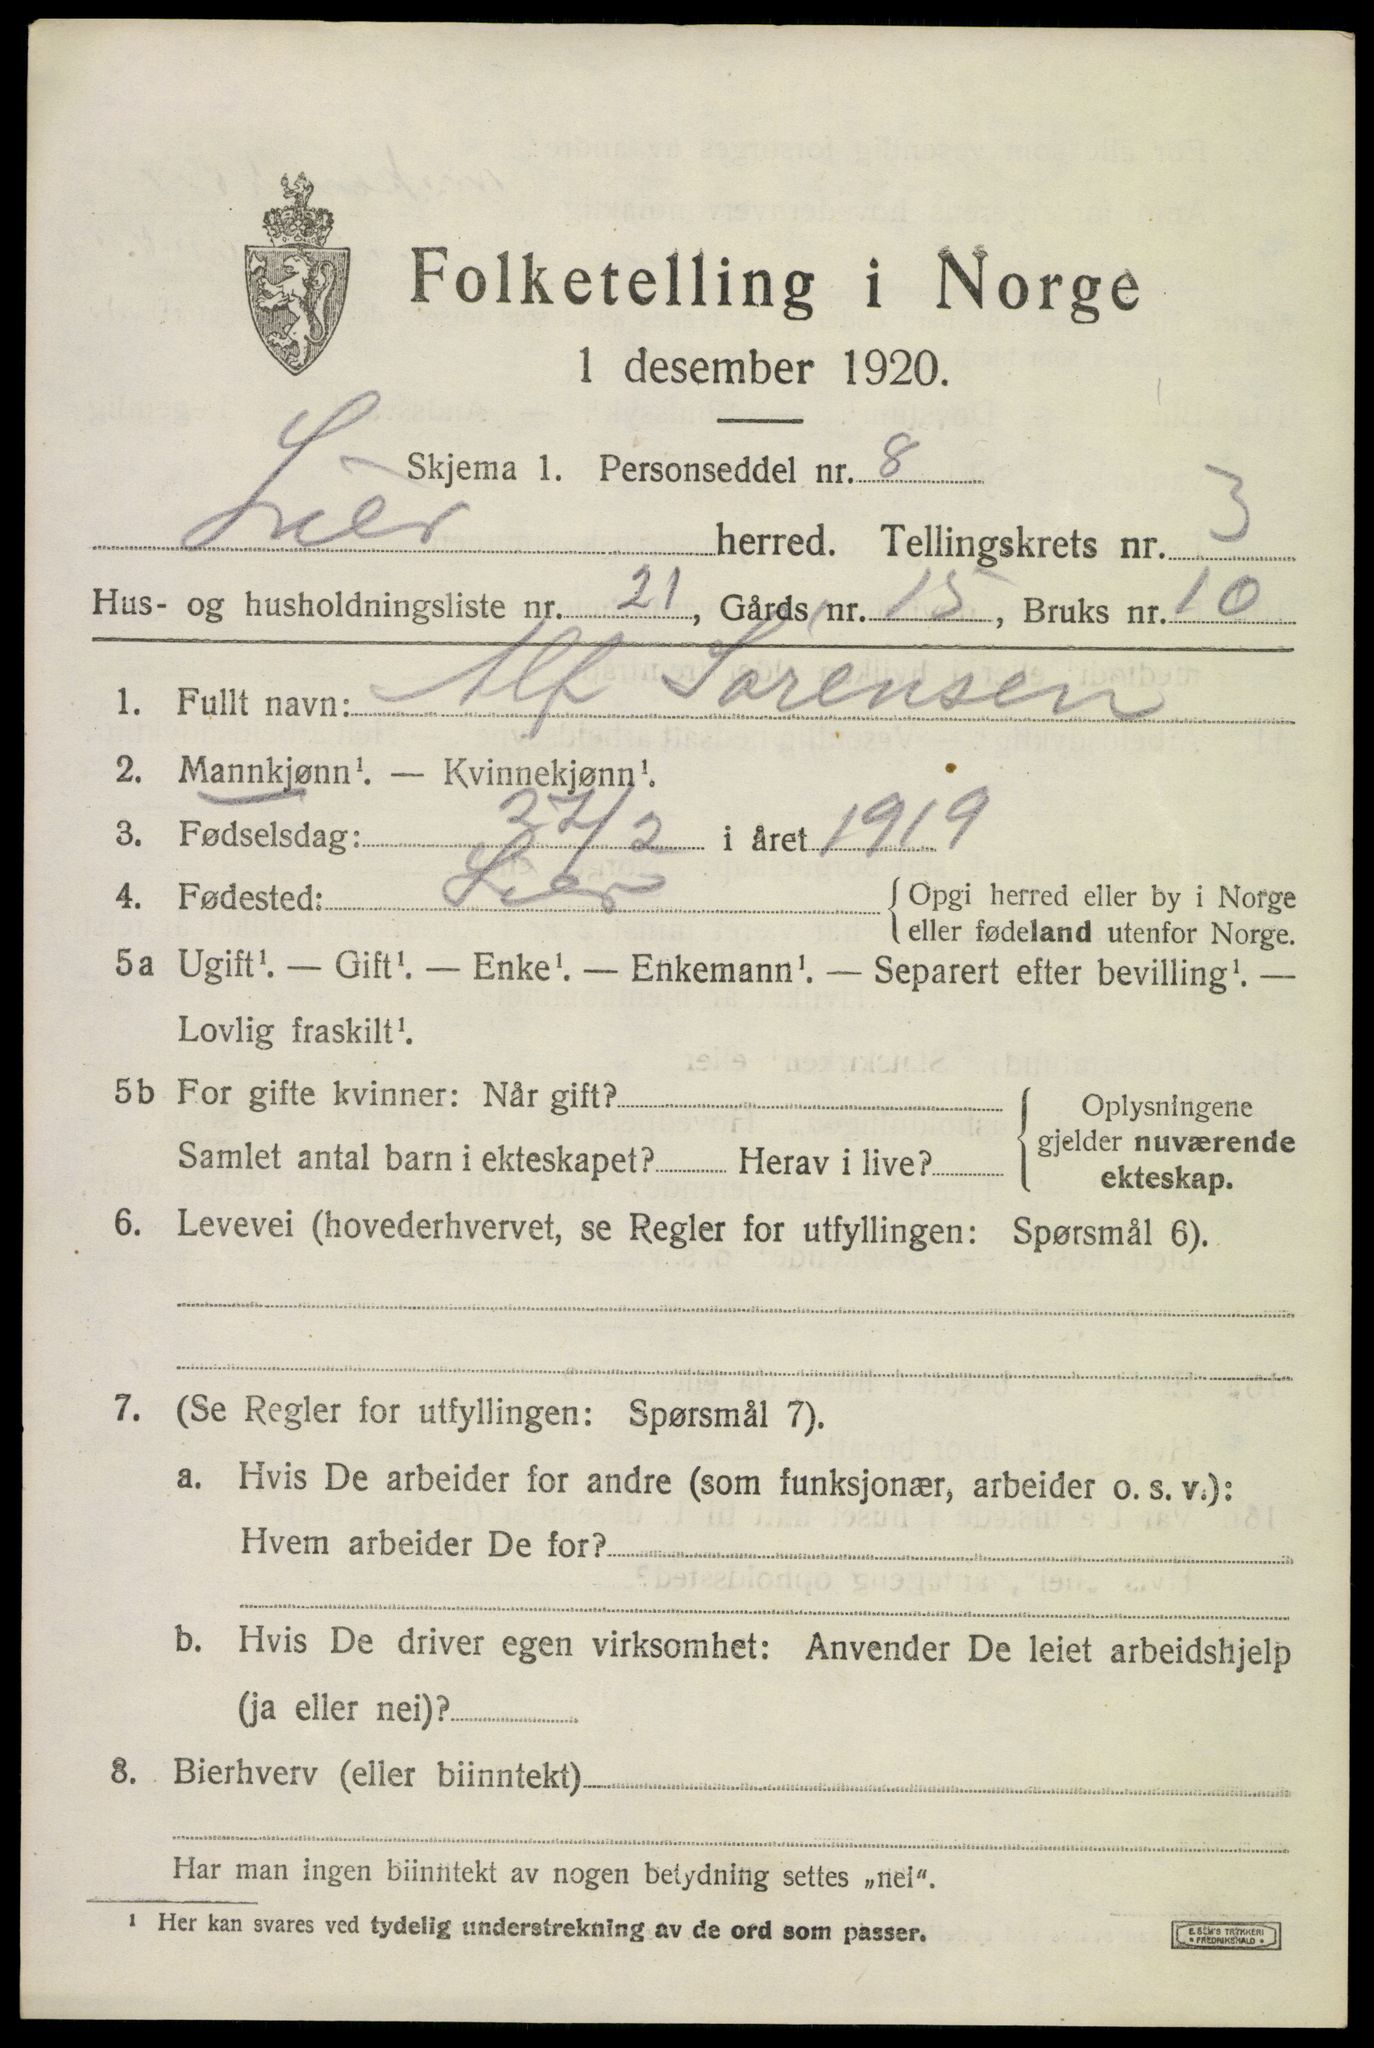 Folketelling i Norge
1 desember 1920.
Skjema 1. Personseddel nr. 8
Lier herred. Tellingskrets nr. 3
Hus- og husholdningsliste nr. 21, Gårds nr. 15, Bruks nr. 10
1. Fullt navn: Alf Sørensen
2. Mannkjønn¹. — Kvinnekjønn¹.
3. Fødselsdag: 27/2 i året 1919
4. Fødested: Lier {Opgi herred eller by i Norge
eller fødeland utenfor Norge.
5a Ugift¹. — Gift¹. — Enke¹. — Enkemann¹. — Separert efter bevilling¹. —
Lovlig fraskilt¹.
5b For gifte kvinner: Når gift? { Oplysningene
gjelder nuværende
Samlet antal barn i ekteskapet? Herav i live? ekteskap.
6. Levevei (hovederhvervet, se Regler for utfyllingen: Spørsmål 6).
7. (Se Regler for utfyllingen: Spørsmål 7).
a. Hvis De arbeider for andre (som funksjonær, arbeider o. s. v.):
Hvem arbeider De for?
b. Hvis De driver egen virksomhet: Anvender De leiet arbeidshjelp
(ja eller nei)?
8. Bierhverv (eller biinntekt)
Har man ingen biinntekt av nogen betydning settes „nei“.
¹ Her kan svares ved tydelig understrekning av de ord som passer.
E. SEM'S TRYKKERI
• FREDRIKSHALD •